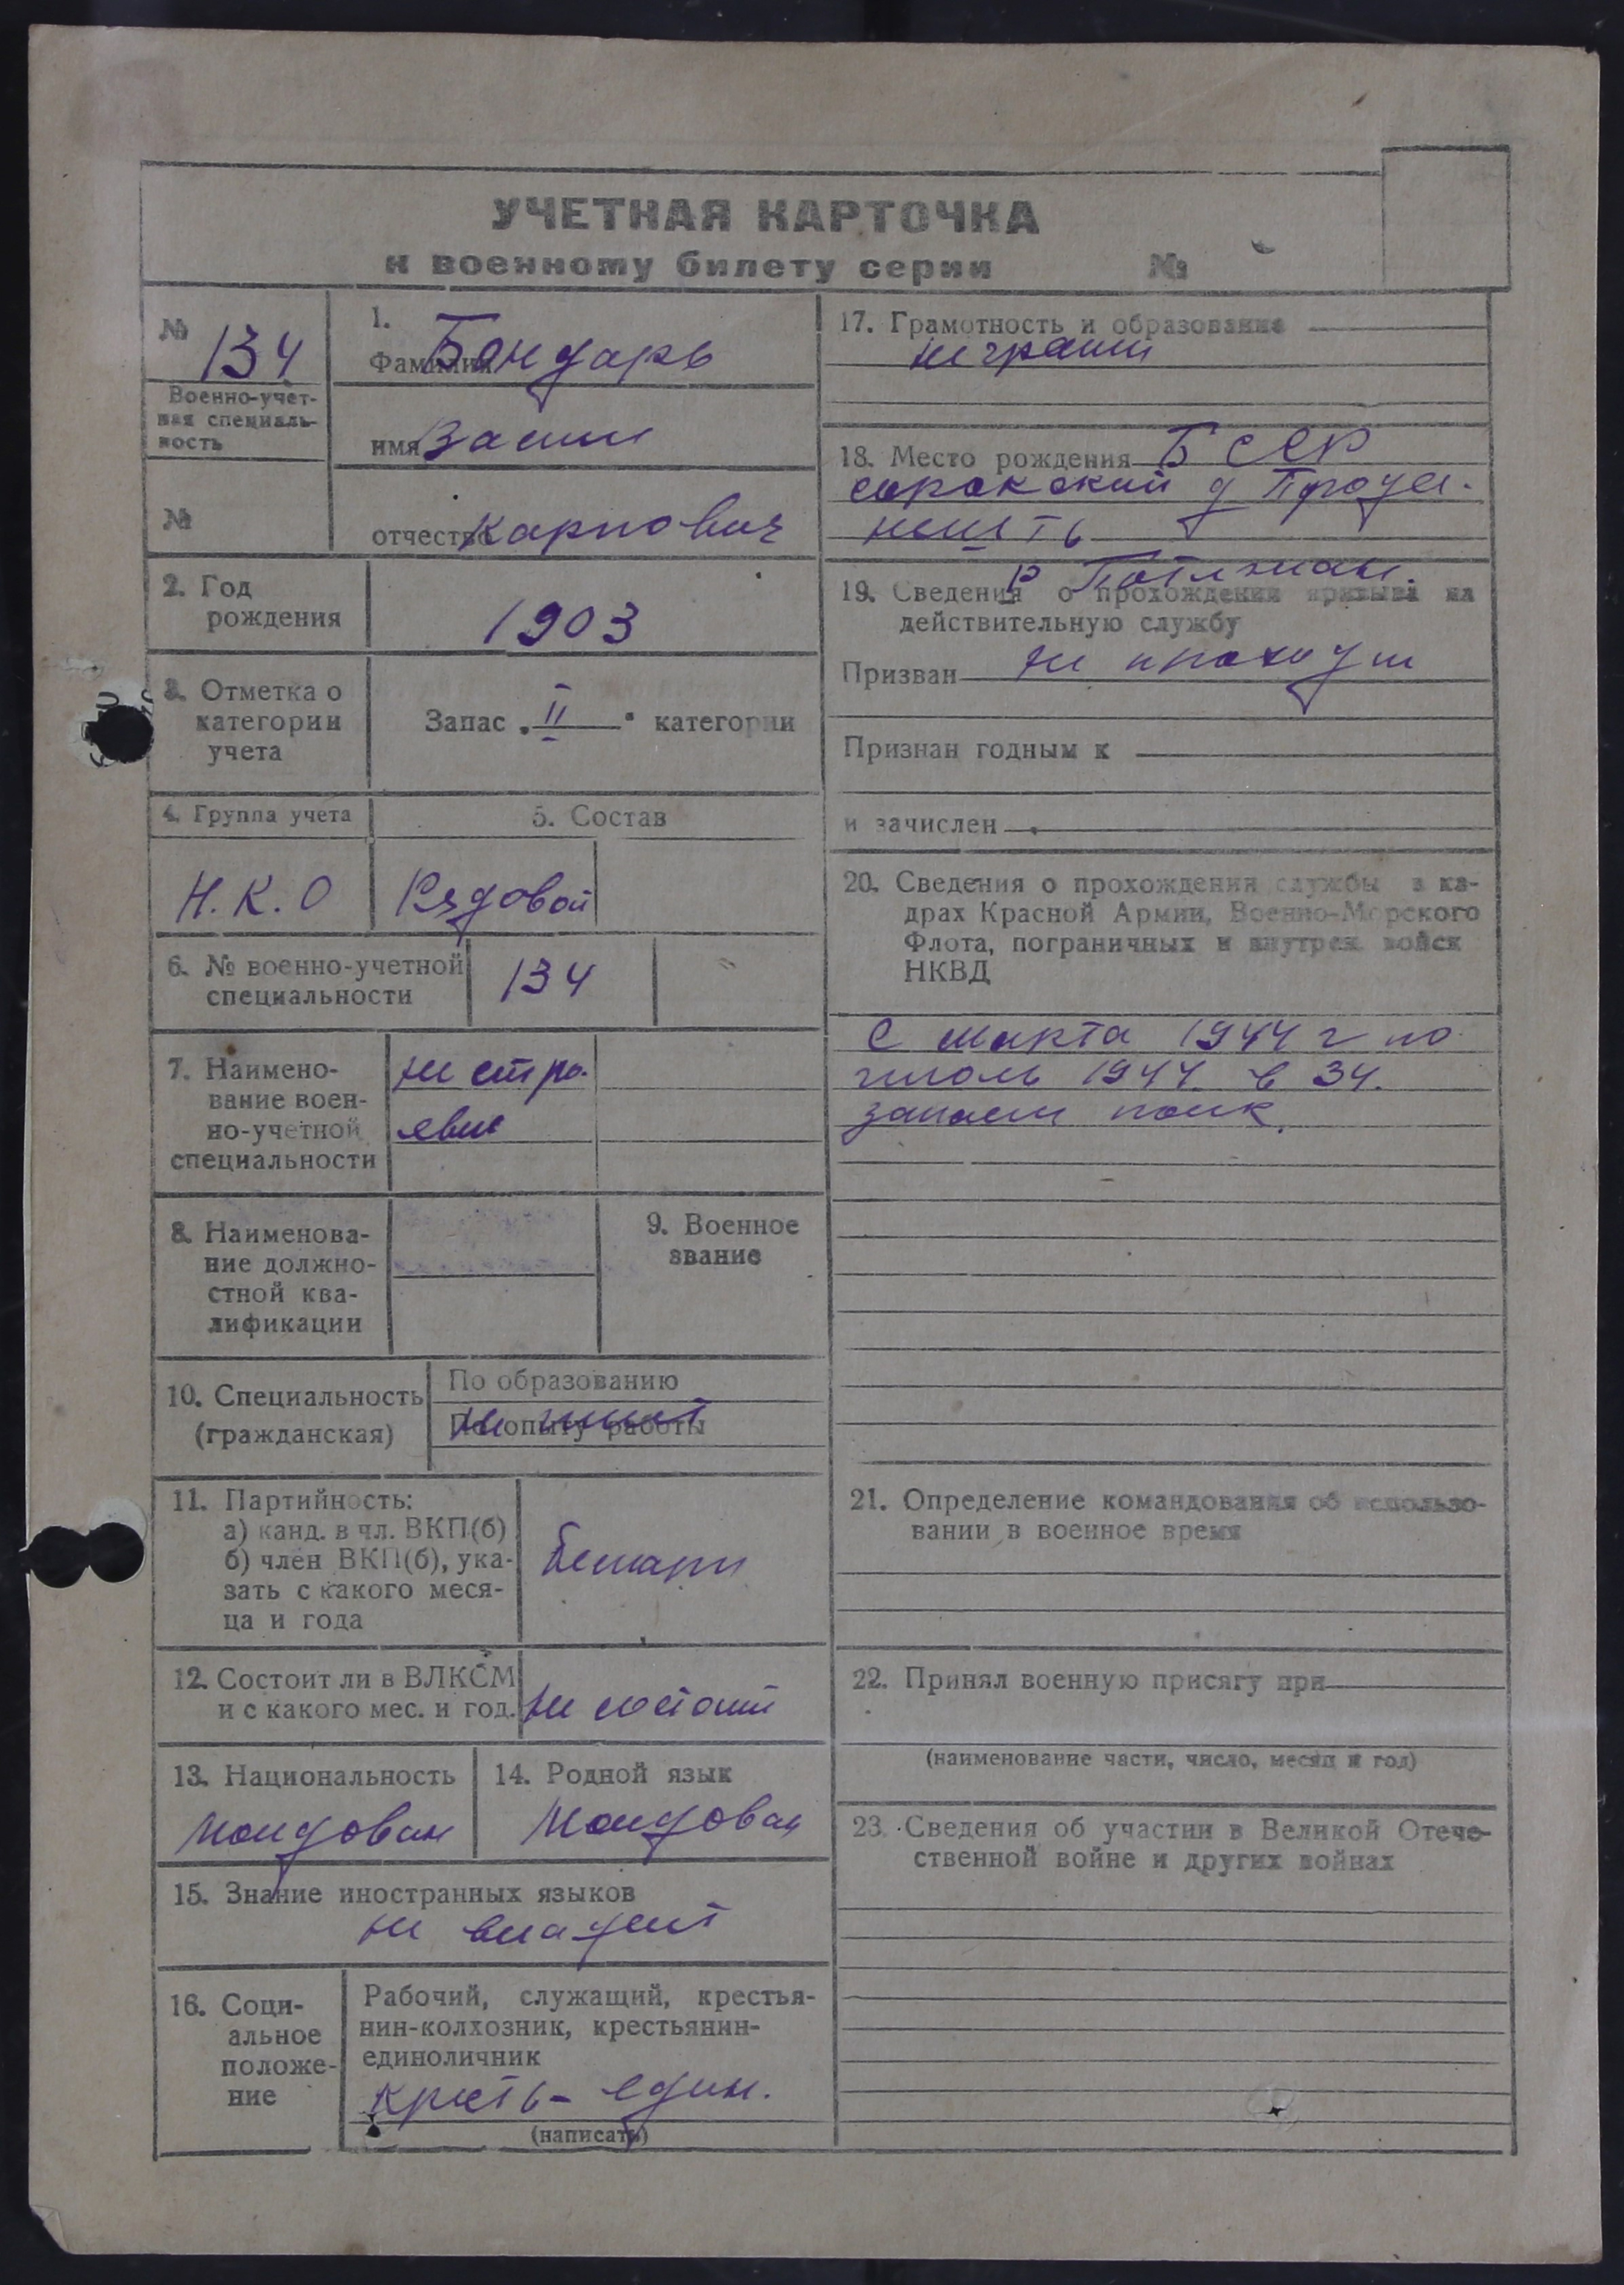 УЧЕТНАЯ КАРТОЧКА
к военному билету серии №
№ 134
Военно-учет-
ная специаль-
ность
№
1.
Фамилия Бондарь
имя Васил
отчество Карпович
2. Год
рождения
1903
3. Отметка о
категории
учета
Запас „II" категории
4. Группа учета
5. Состав
Н.К.О
Рядовой
6. № военно-учетной
специальности
134
7. Наимено-
вание воен-
но-учетной
специальности
не стро-
евые
8. Наименова-
ние должно-
стной ква-
лификации
9. Военное
звание
10. Специальность
(гражданская)
По образованию
По опыту работы
не имеет
11. Партийность:
а) канд. в чл. ВКП(б)
б) член ВКП(б), ука-
зать с какого меся-
ца и года
Беспарт
12. Состоит ли в ВЛКСМ
и с какого мес. и год.
не состоит
13. Национальность
Молдован
14. Родной язык
Молдован
15. Знание иностранных языков
не владеет
16. Соци-
альное
положе-
ние
Рабочий, служащий, крестья-
нин-колхозник, крестьянин-
единоличник
кресть- един.
(написать)
17. Грамотность и образование
не грамт
18. Место рождения БССР
сорокский у
19. Сведения о прохождении призыва на
действительную службу
Призван не проходил
Признан годным к
и зачислен
20. Сведения о прохождении службы в ка-
драх Красной Армии, Военно-Морского
Флота, пограничных и внутрен. войск
НКВД
С марта 1944 г по
июль 1944 в 34.
запасн полк.
21. Определение командования об использо-
вании в военное время
22. Принял военную присягу при
(наименование части, число, месяц и год)
23. Сведения об участии в Великой Отече-
ственной войне и других войнах